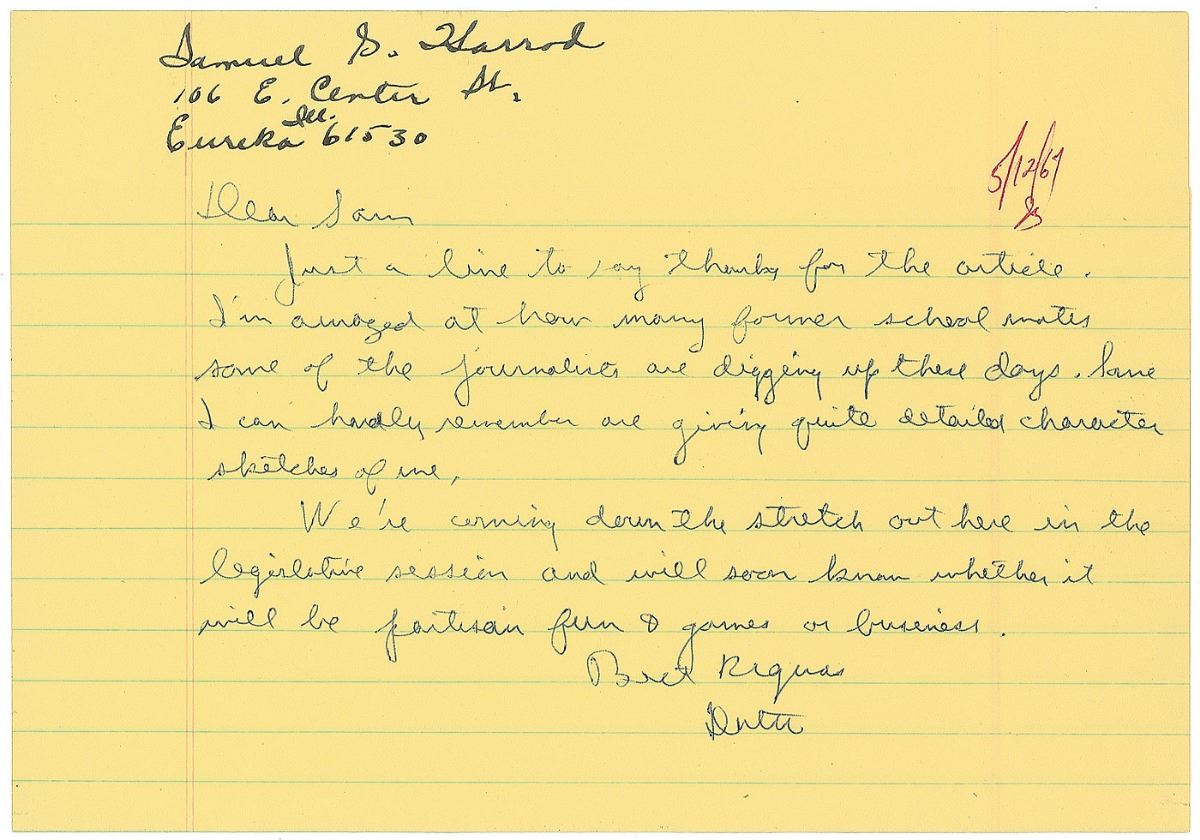 Samuel G. Harrod
106 E. Center St.
Ill.
Eureka 61530
5/12/67
Dear Sam
Just a line to say thanks for the article.
I'm amazed at how many former school mates
some of the journalists are digging up these days. Some
I can hardly remember are giving quite detailed character
sketches of me.
We're coming down the stretch out here in the
legislative session and will soon know whether it
will be partisan fun & games or business.
Best Regards
Dutch